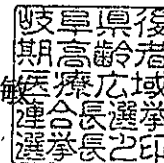 岐阜県後
期高齢者
医療広域
連合長選挙
選挙長之印
敏